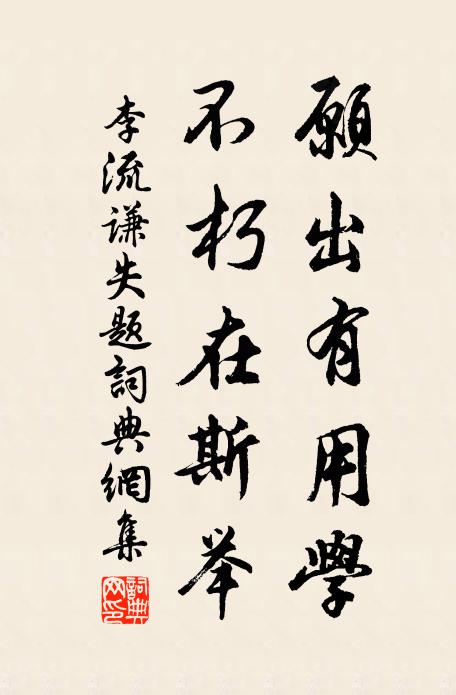 願出有用學
不朽在斯举
李流谦失題詞典網集
詞典网印